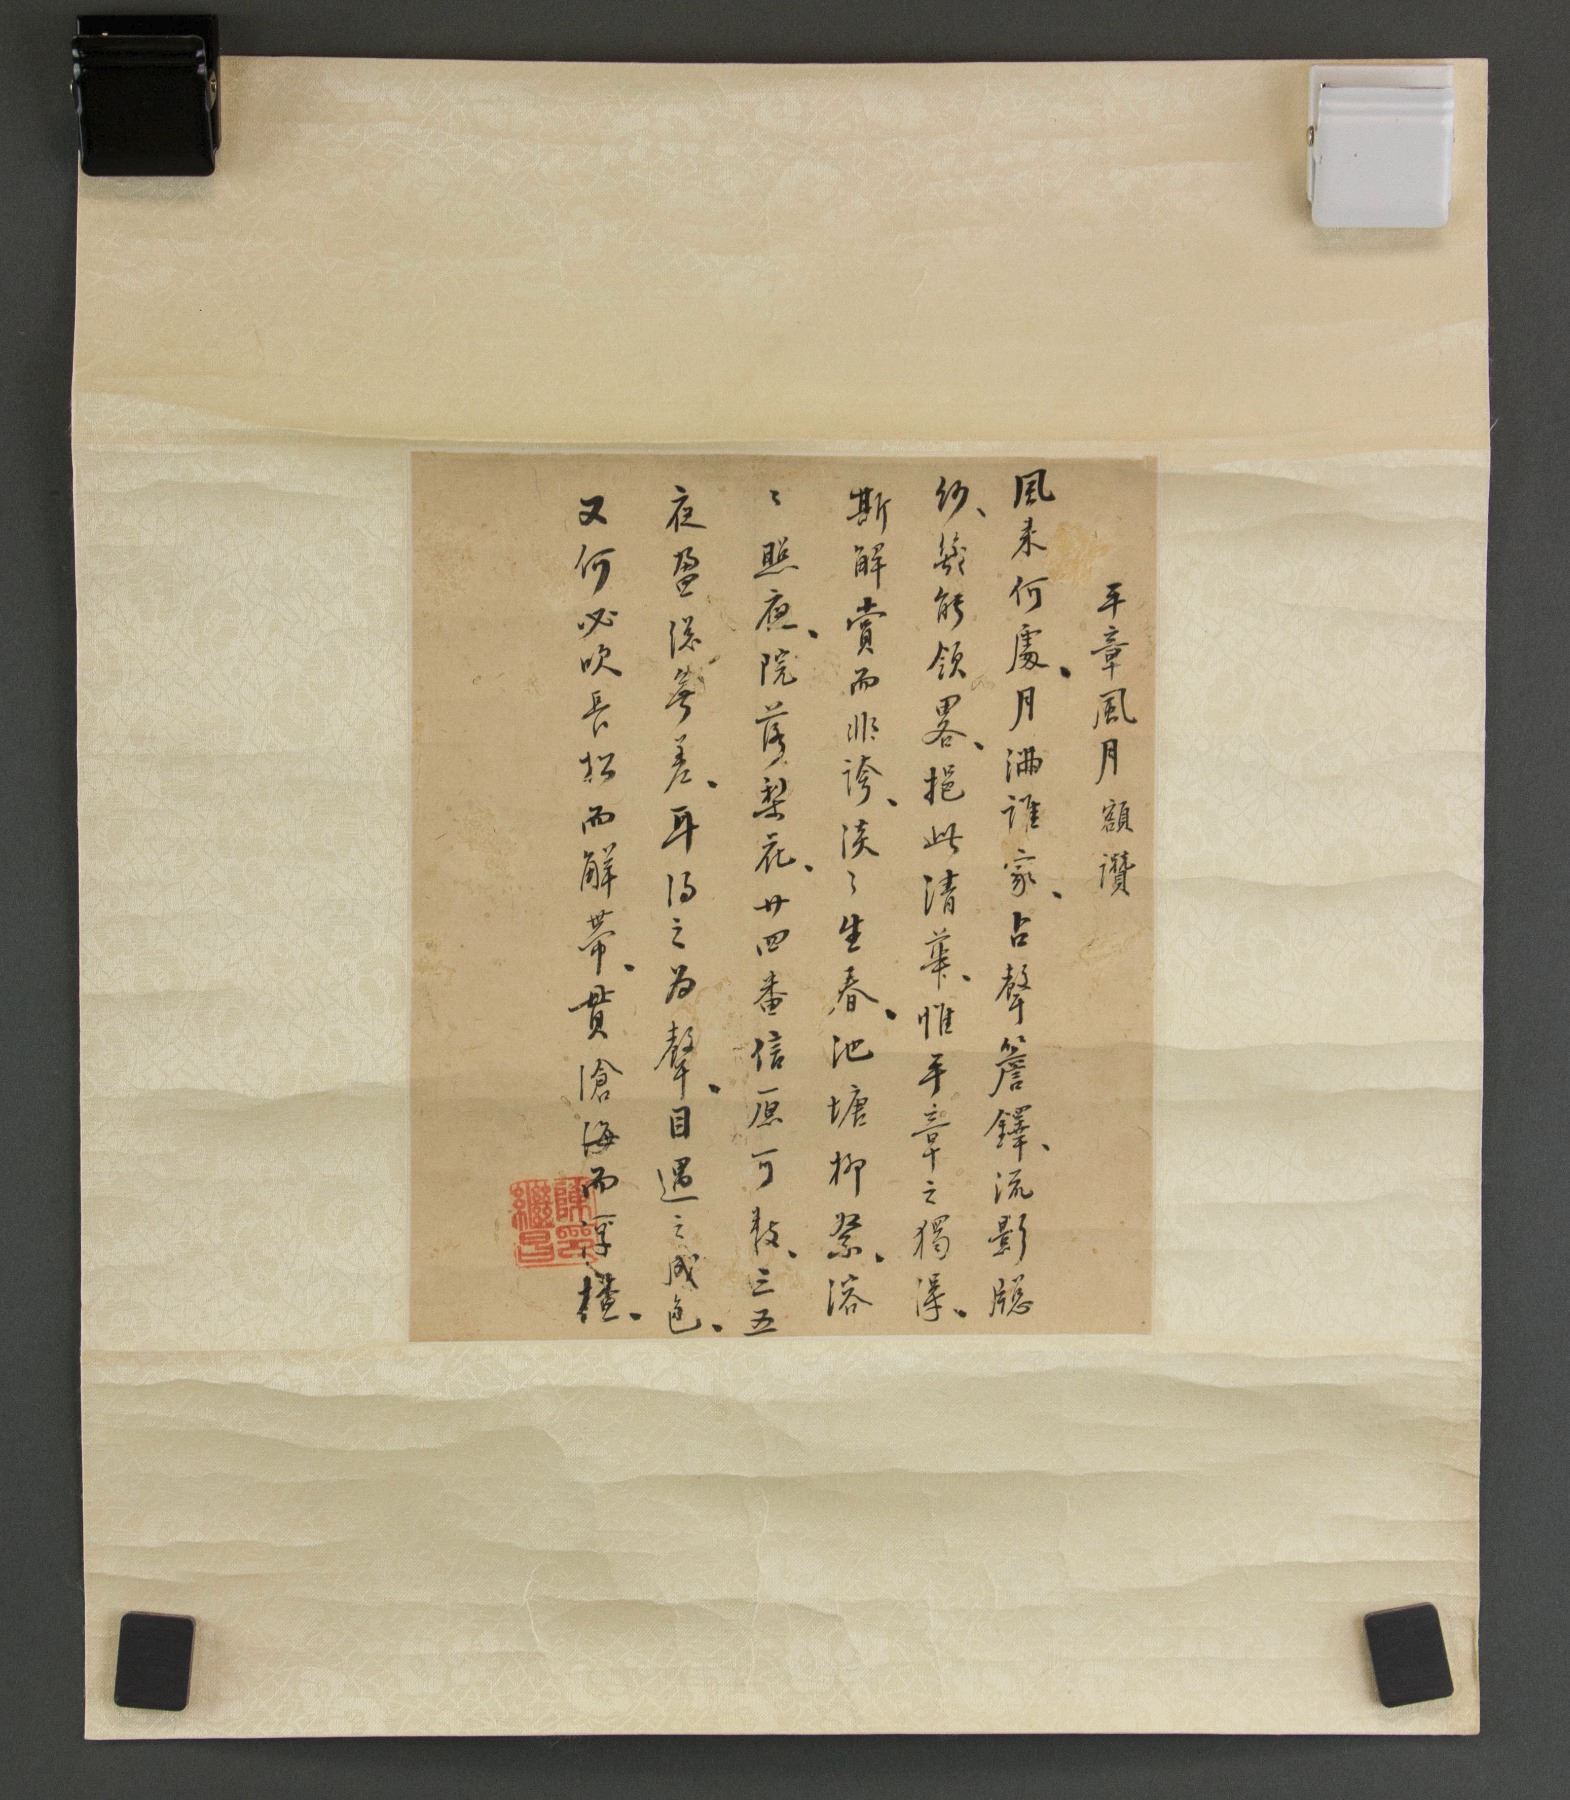 平章風月額讚
風來何處、月滿誰家、占聲簷鐸、流影牕
紗、幾能領畧、挹此清華、惟平章之獨深、
斯解賞而非誇、淡々生春、池塘柳絮、溶
々照夜、院落梨花、廿四番信原可數、三五
夜盈溢無差、耳得之為聲、目遇之成色、
又何必吹長松而解帶、貫滄海而浮槎、